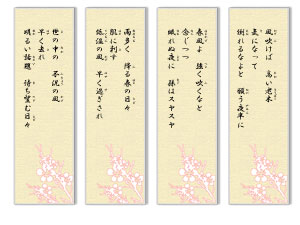 風吹けば　高い老木
気になって
倒れるなよと　願う夜半に
春風よ　強く吹くなと
念じつつ
眠れぬ夜に　孫はスヤスヤ
雨多く　降る春の日々
肌に刺す
低温の風　早く過ぎされ
世の中の　不況の風
早く去れ
明るい話題　待ち望む日々